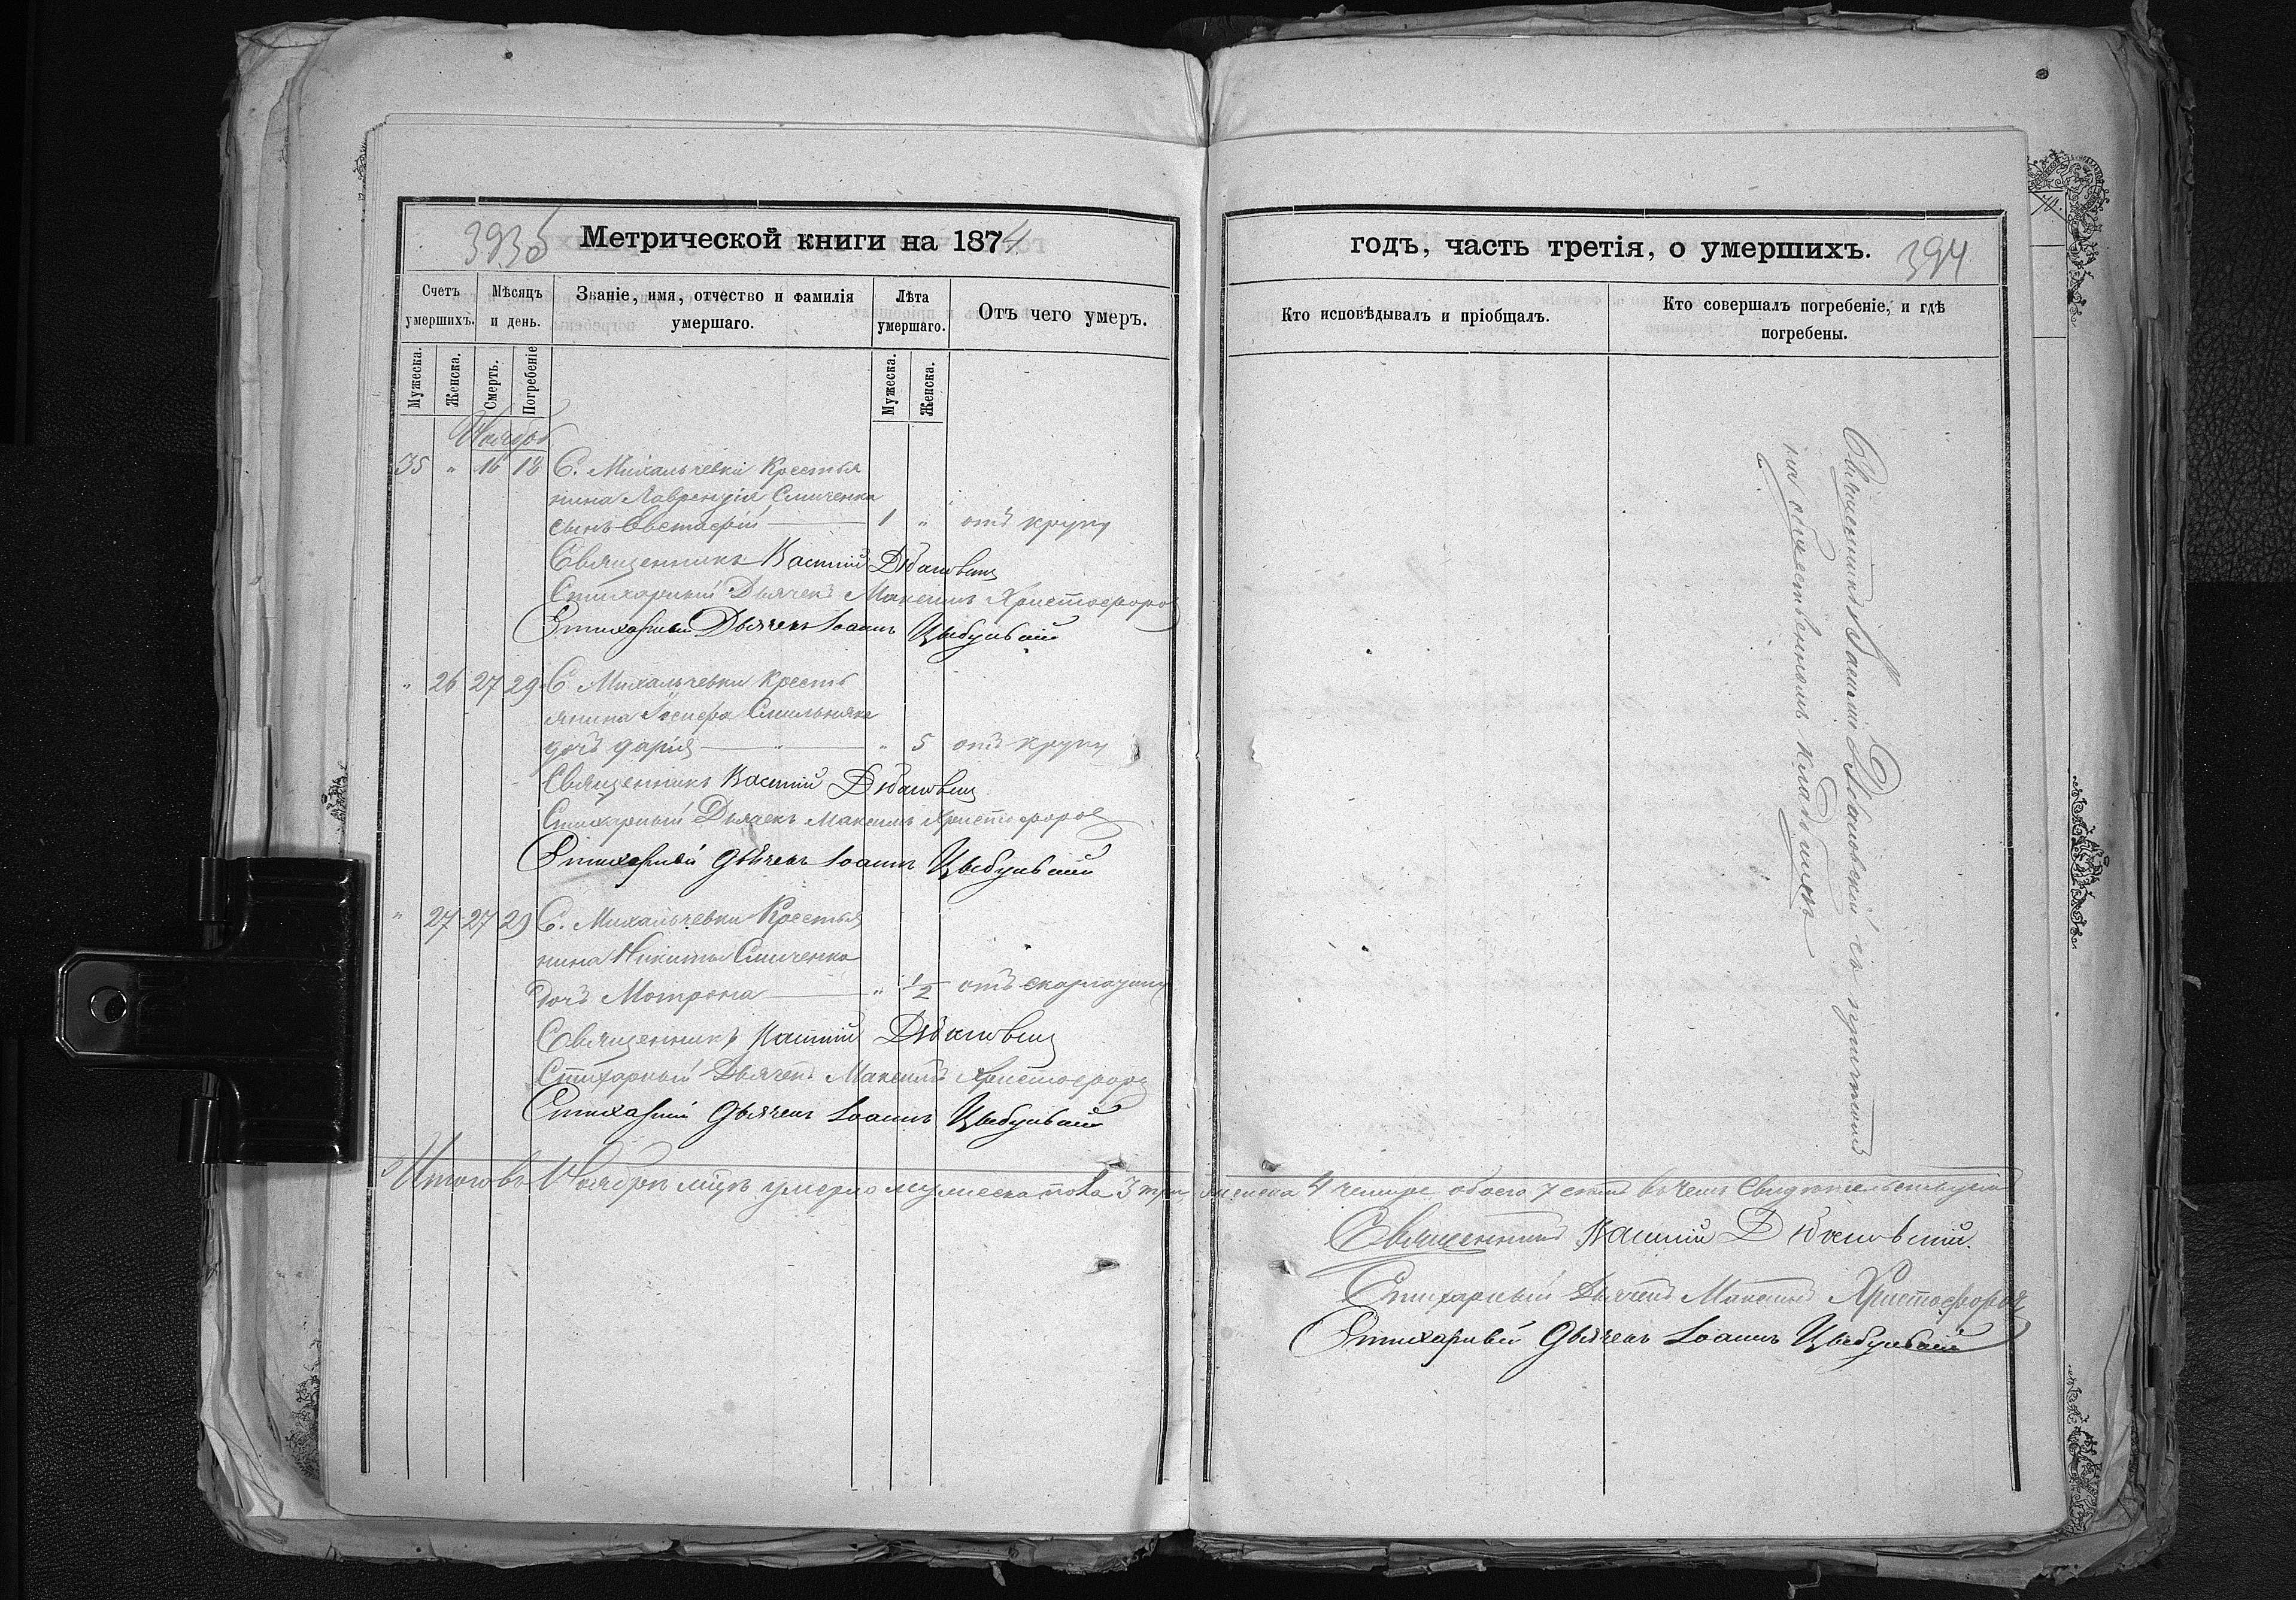 393б Метрической книги на 1874
Счетъ умершихъ.
Мѣсяцъ и день.
Званіе, имя, отчество и фамилія умершаго.
Лѣта умершаго.
Отъ чего умеръ.
Мужеска.
Женска.
Смерть.
Погребеніе
Мужеска.
Женска.
Ноябрь
35 " 16 18 С. Михальчевки Крестья
нина Лаврентія Смиченка
сынъ Евстафій — 1 " отъ крупу
Священникъ Василій Дібановскій
Стихарный Дьячекъ Максимъ Христофоров
Стихарный Дьячекъ Іоаннъ Цыбульский
" 26 27 29 С Михальчевки Кресть
янина Іосифа Смильняка
дочь Дарія — " — " 5 отъ крупу
Священникъ Василій Дібановскій
Стихарный Дьячекъ Максимъ Христофоров
Стихарный Дьячекъ Іоаннъ Цыбульский
" 27 27 29 С. Михальчевки Крестья
нина Никиты Смиченка
дочь Мотрона — " 1/2 отъ скарлатины
Священникъ Василій Дібановскій
Стихарный Дьячекъ Максимъ Христофоров
Стихарный Дьячекъ Іоаннъ Цыбульский
Итого въ Ноябрѣ мцѣ умерло мужеска пола 3 три
годъ, часть третія, о умершихъ. 394
Кто исповѣдывалъ и пріобщалъ.
Кто совершалъ погребеніе, и гдѣ погребены.
Священникъ Василій Дібановскій съ причтомъ
на общественномъ кладбищѣ
женска 4 четыре обоего 7 семь въ чемъ Свидѣтельствуемъ
Священникъ Василій Дібановскій.
Стихарный Дьячекъ Максимъ Христофоров
Стихарный Дьячекъ Іоаннъ Цыбульский